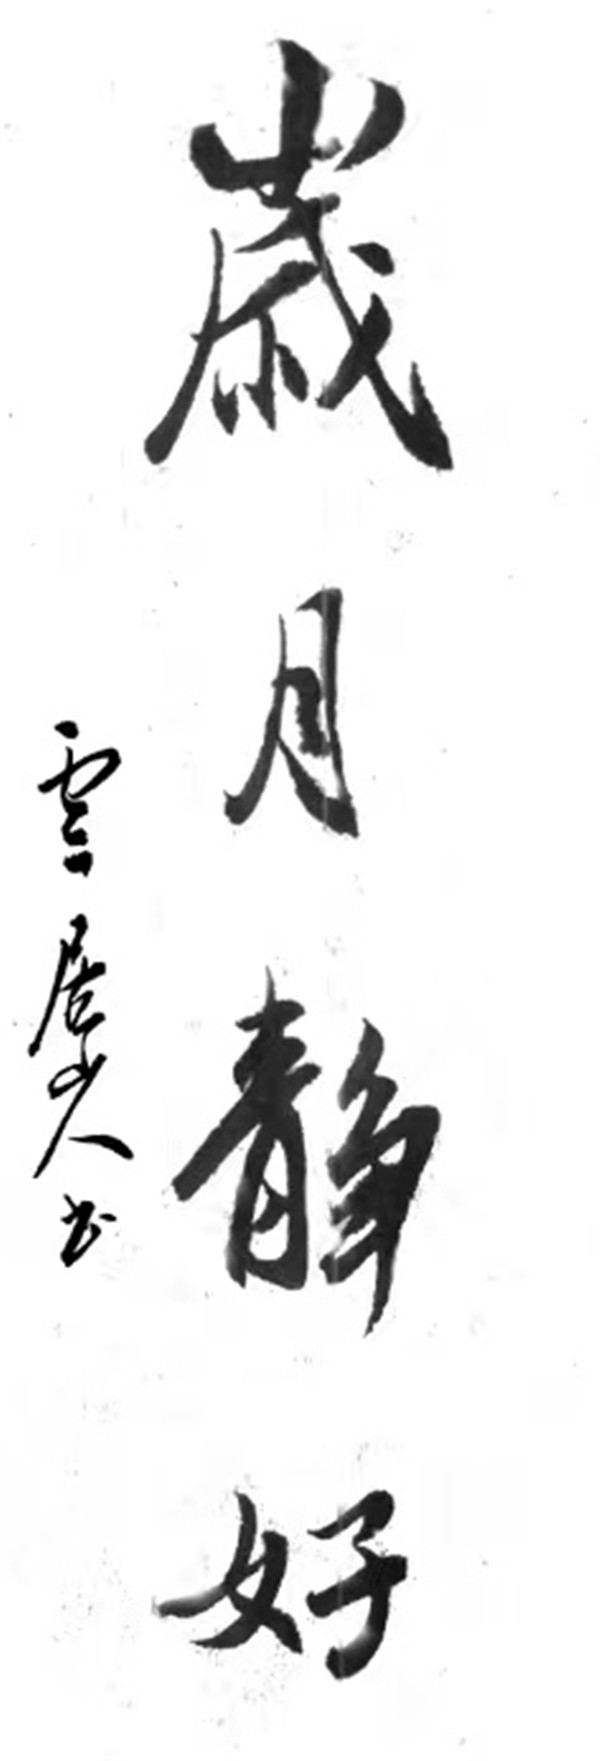 歲月靜好
雲居山人书